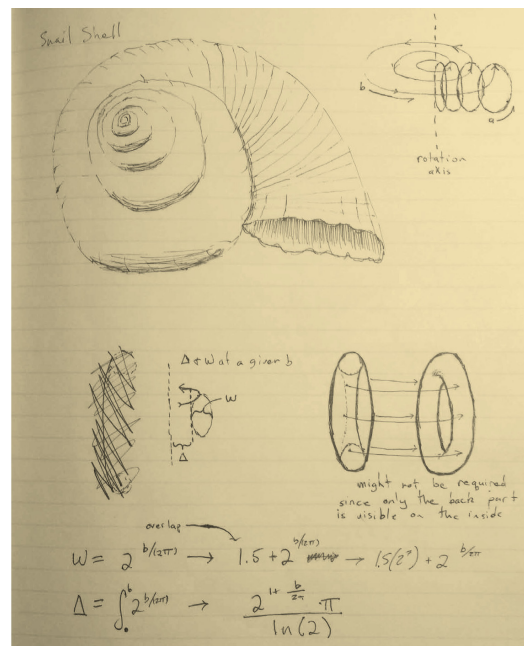 Snail Shell
b
a
rotation
axis
Δ & W at a given b
W
Δ
might not be required
since only the back part
is visible on the inside
overlap
W = 2^(b/(2π)) → 1.5 + 2^(b/(2π)) → 1.5(2^?) + 2^(b/2π)
Δ = ∫₀^b 2^(b/(2π)) → 2^(1+b/2π) · π / ln(2)